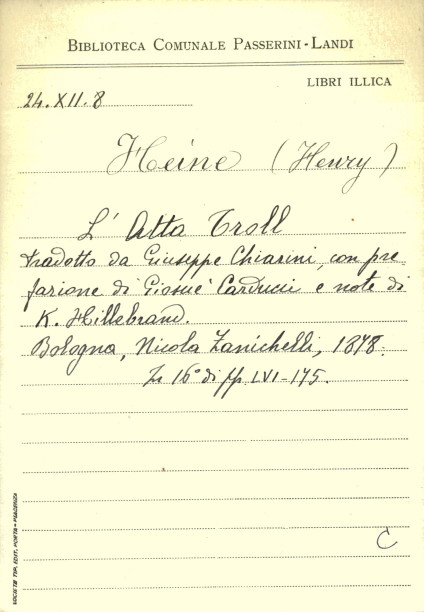 BIBLIOTECA COMUNALE PASSERINI-LANDI
LIBRI ILLICA
24.XII.8
Heine (Henry)
L' Atta Troll
tradotto da Giuseppe Chiarini, con pre
fazione di Giosuè Carducci e note di
K. Hillebrand.
Bologna, Nicola Zanichelli, 1878.
In 16° di pp. LVI-175.
C
SOCIETÀ TIP. EDIT. PORTA - PIACENZA